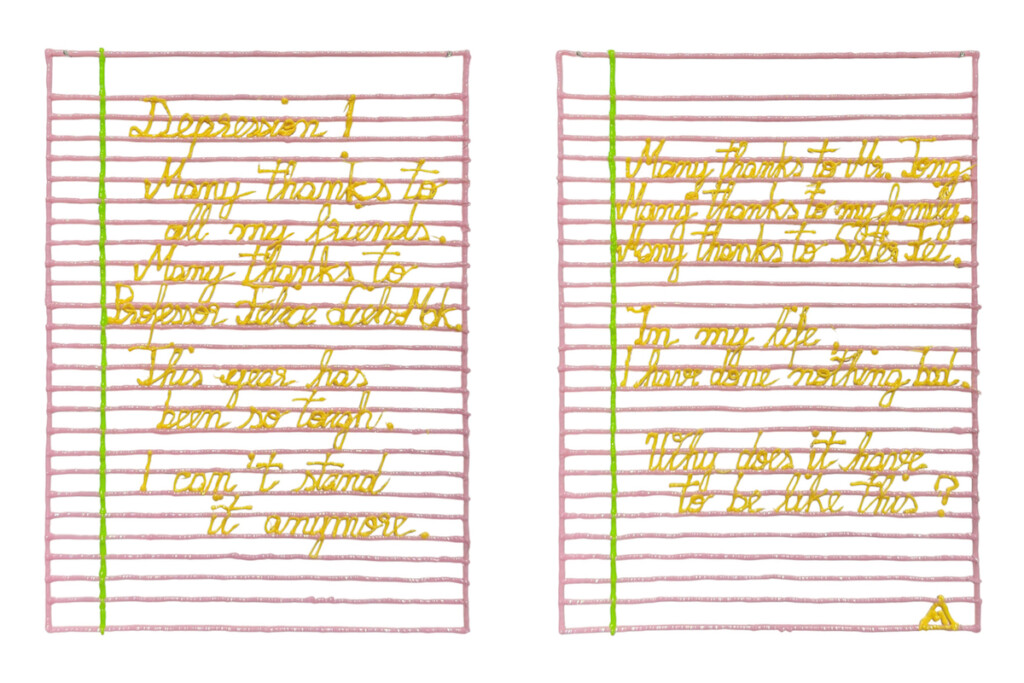 Depression !
Many thanks to
all my friends.
Many thanks to
Professor Felice Lieh-Mak.
This year has
been so tough.
I can't stand
it anymore.
Many thanks to Mr. Tong.
Many thanks to my family.
Many thanks to Sister Fei.
In my life,
I have done nothing bad.
Why does it have
to be like this ?